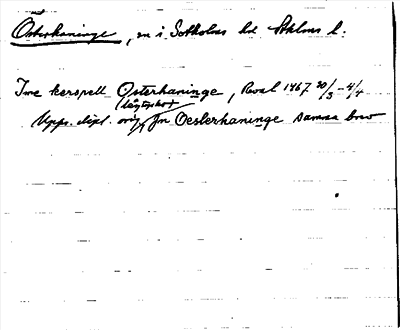 Österhaninge, sn i Sotholms hd Sthlms l.
Twe kerspell Osterhaninge, Reval 1467 30/3 - 4/4
(lågtyska)
Upps. dipl. orig. fm Oesterhaninge samma brev